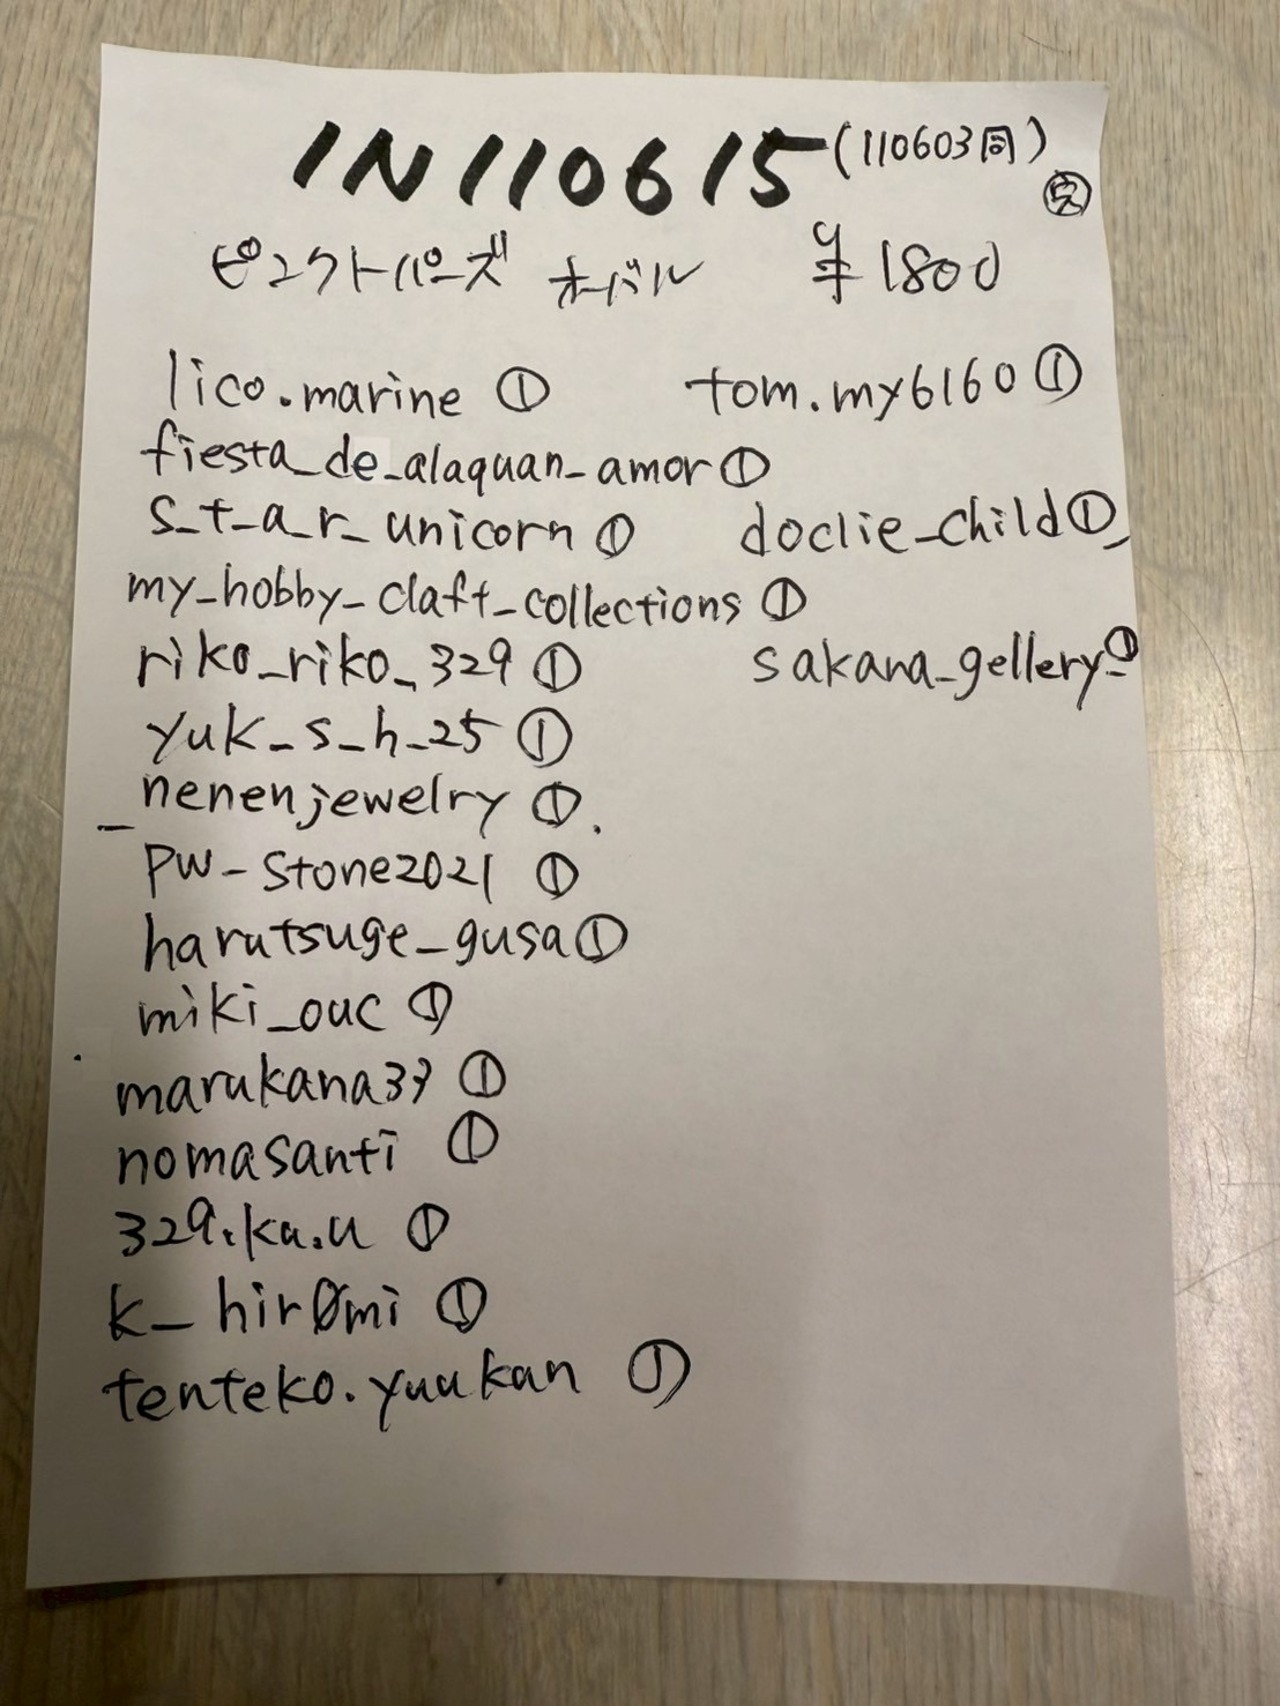 IN110615(110603同)
ピンクトパーズ オーバル ¥1800
lico.marine ① tom.my6160 ①
fiesta_de_alaquan_amor ①
s_t_a_r_unicorn ① doclie_child ①
my_hobby_claft_collections ①
riko_riko_329 ① sakana_gellery_①
yuk_s_h_25 ①
_nenenjewelry ①.
pw_stone2021 ①
harutsuge_gusa ①
miki_ouc ①
marukana33 ①
nomasanti ①
329.ka.u ①
k_hir0mi ①
tenteko.yuukan ①